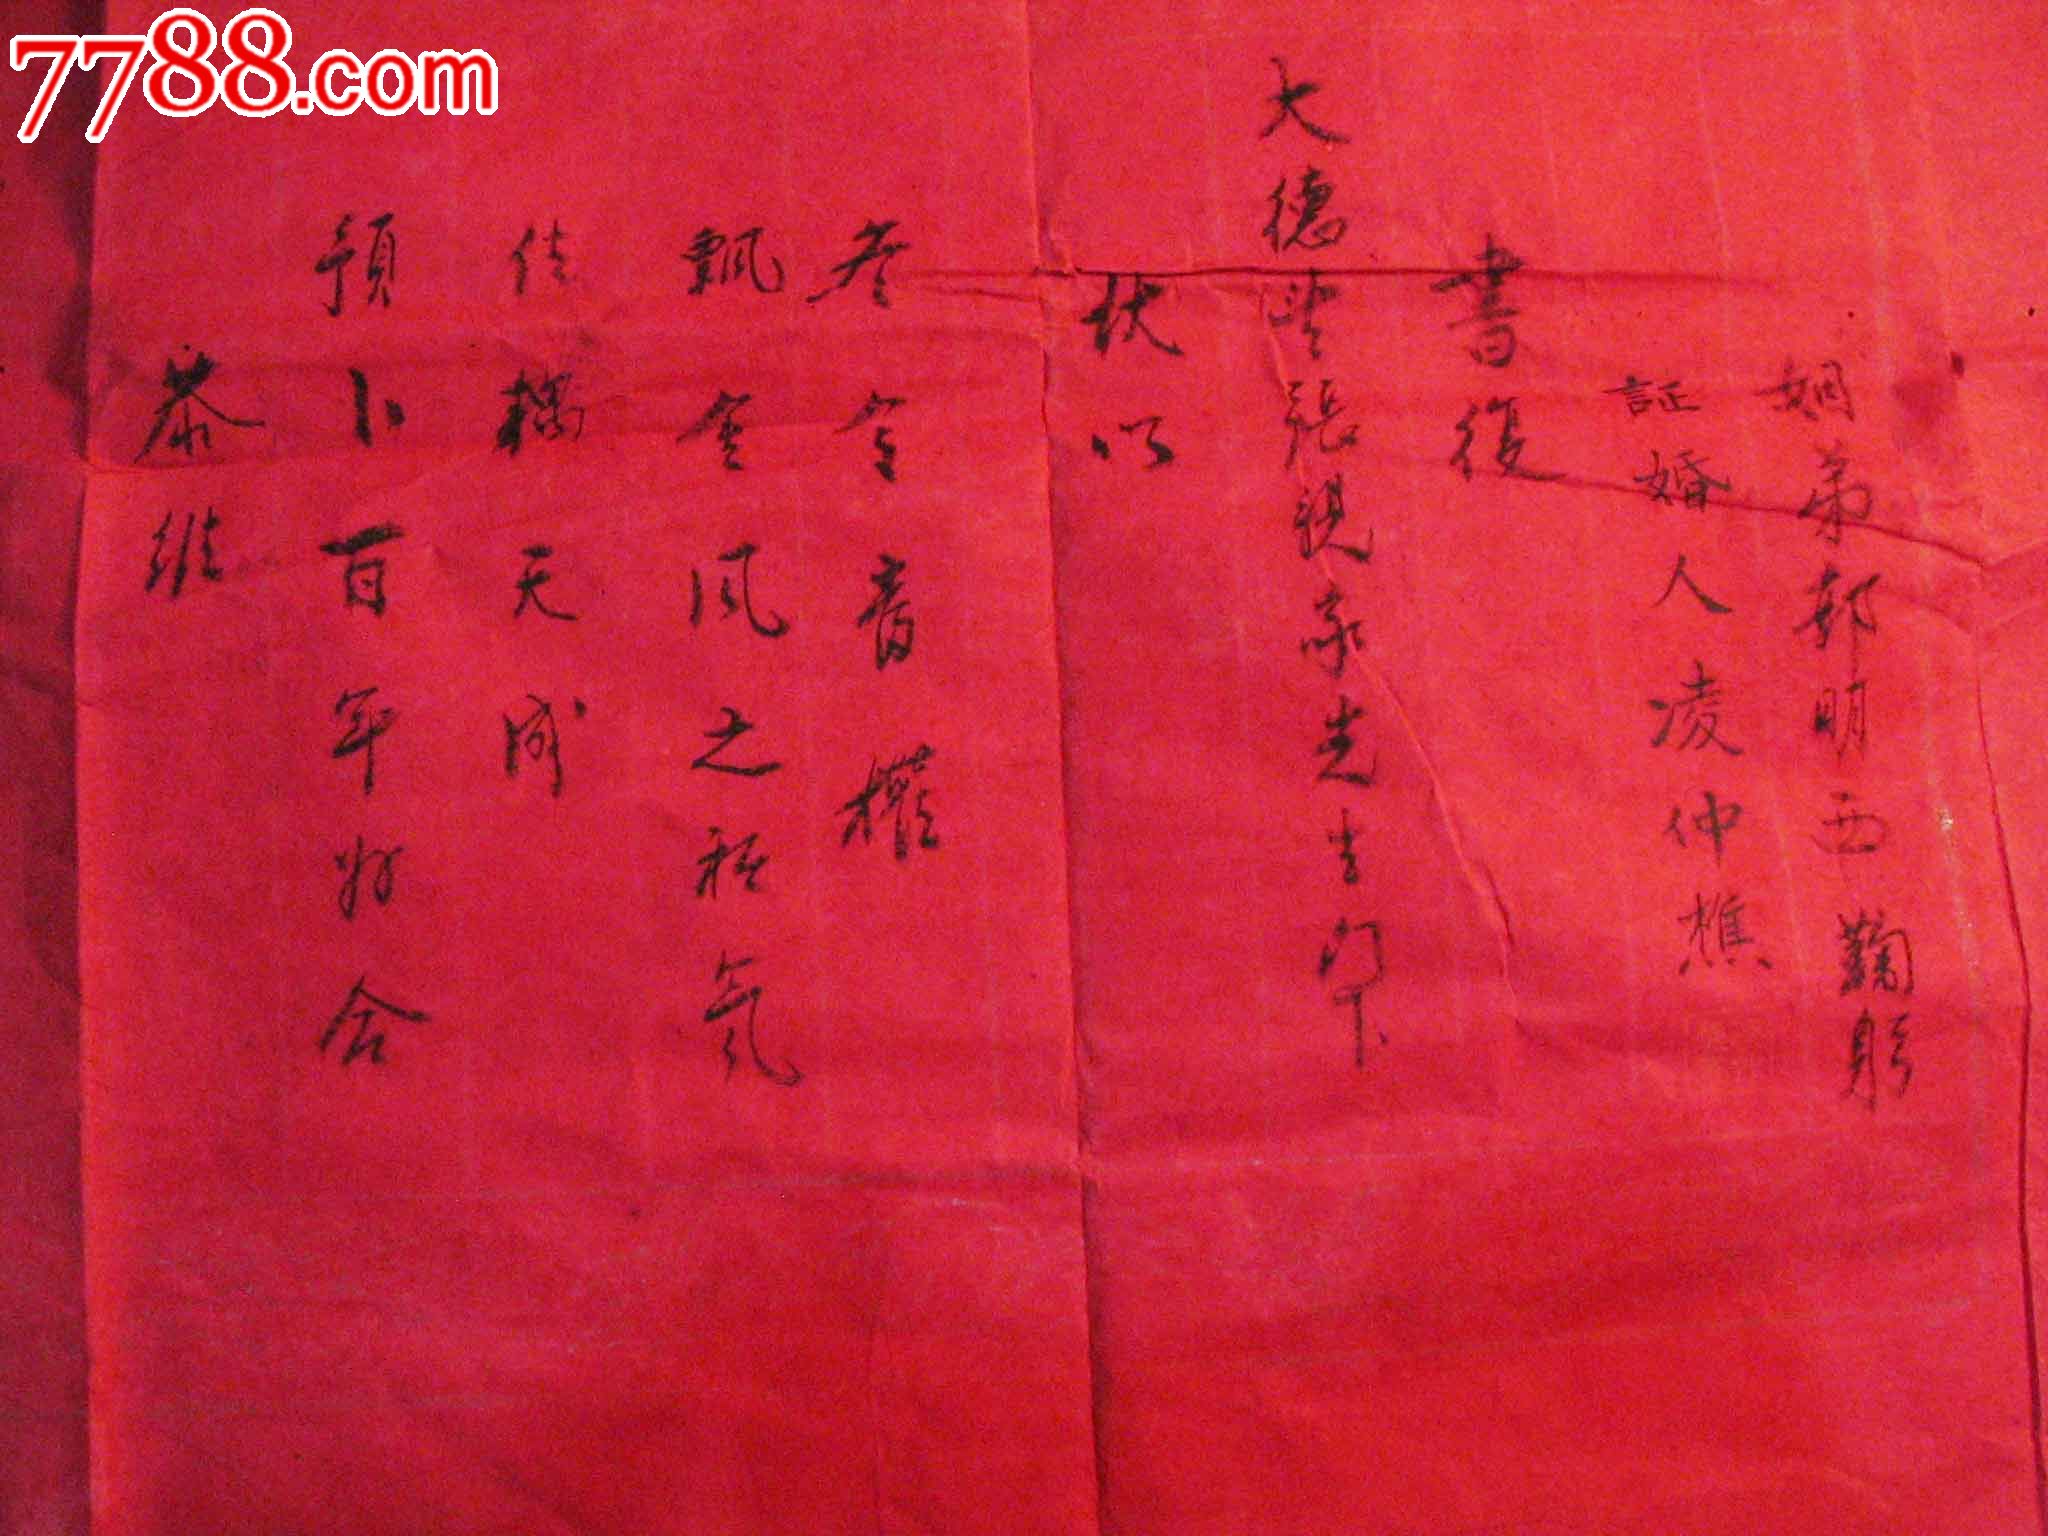 7788.com
姻弟郝明西鞠躬
証婚人凌仲樵
書復
大德望張親家先生門下
伏以
冬令音權
飄金風之祖氣
佳耦天成
預卜百年好合
恭維